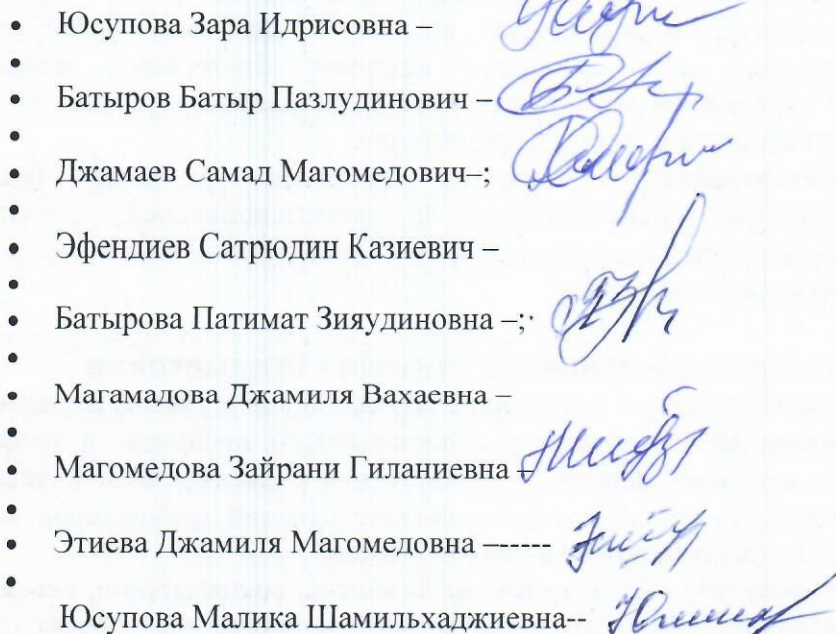 • Юсупова Зара Идрисовна –
•
• Батыров Батыр Пазлудинович –
•
• Джамаев Самад Магомедович–;
•
• Эфендиев Сатрюдин Казиевич –
•
• Батырова Патимат Зияудиновна –;·
•
• Магамадова Джамиля Вахаевна –
•
• Магомедова Зайрани Гиланиевна –
•
• Этиева Джамиля Магомедовна –-----
•
Юсупова Малика Шамильхаджиевна--